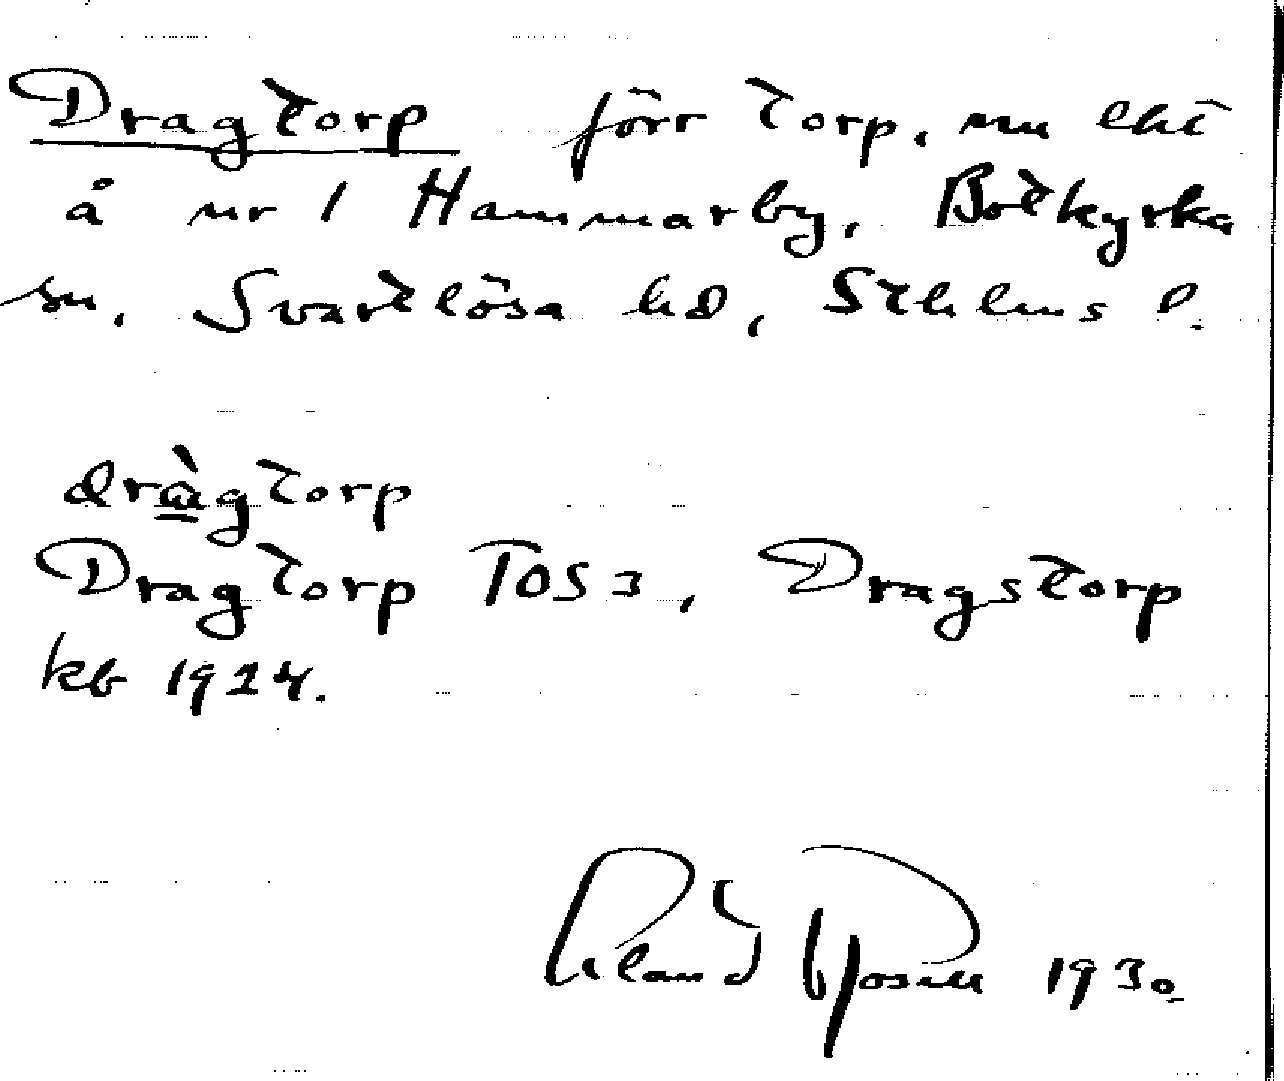 Dragtorp förr torp, nu lht
å nr 1 Hammarby, Botkyrka
sn, Svartlösa hd, Sthlms l.
dràgtorp
Dragtorp TOS 3, Dragstorp
kb 1924.
1930